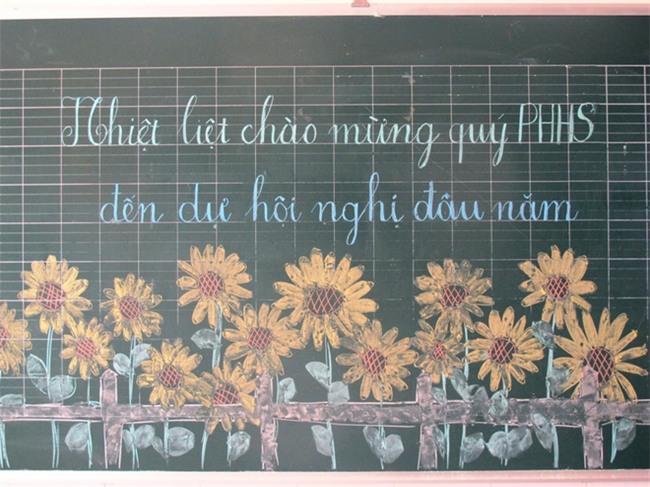 Nhiệt liệt chào mừng quý PHHS
đến dự hội nghị đầu năm